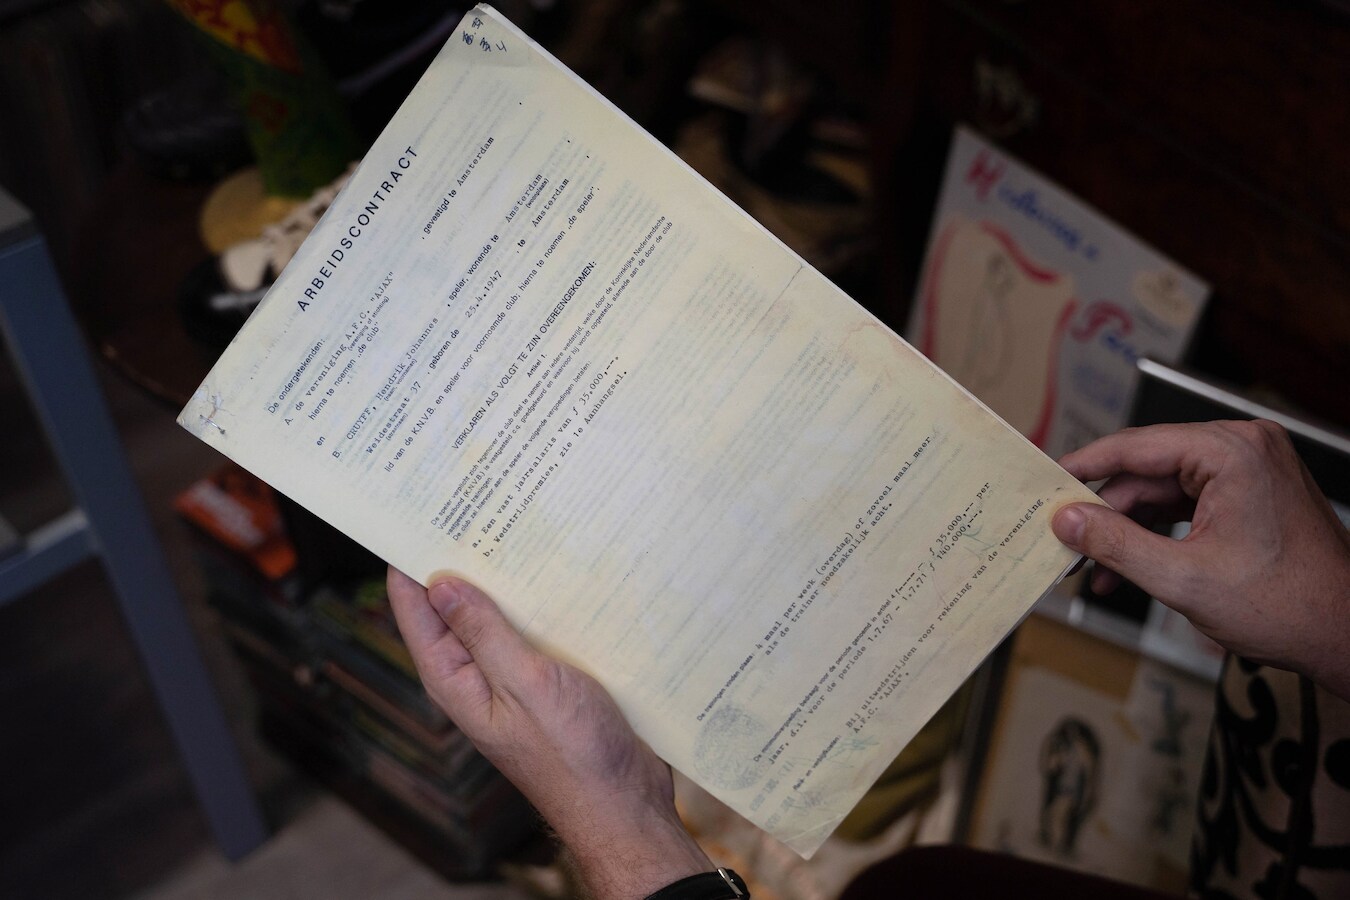 ARBEIDSCONTRACT
De ondergetekenden:
A. de vereniging A.F.C. "AJAX" , gevestigd te Amsterdam
(vereniging of stichting)
hierna te noemen „de club"
en
B. CRUYFF, Hendrik Johannes , speler, wonende te Amsterdam
(naam, voornamen) (woonplaats)
Weidestraat 37 , geboren de 25.4.1947 te Amsterdam
lid van de K.N.V.B. en speler voor voornoemde club, hierna te noemen „de speler".
VERKLAREN ALS VOLGT TE ZIJN OVEREENGEKOMEN:
Artikel 1.
De speler verplicht zich tegenover de club deel te nemen aan iedere wedstrijd, welke door de Koninklijke Nederlandsche
Voetbalbond (K.N.V.B.) is vastgesteld c.q. goedgekeurd en waarvoor hij wordt opgesteld, alsmede aan de door de club
vastgestelde trainingen.
De club zal hiervoor aan de speler de volgende vergoedingen betalen:
a. Een vast jaarsalaris van ƒ 35.000,--.
b. Wedstrijdpremies, zie 1e Aanhangsel.
De trainingen vinden plaats: 4 maal per week (overdag) of zoveel maal meer
als de trainer noodzakelijk acht.
De minimumvergoeding bedraagt voor de periode genoemd in artikel 4 ƒ 35.000,--- per
jaar, d.i. voor de periode 1.7.67 - 1.7.71 ƒ 140.000,--.
Bij uitwedstrijden voor rekening van de vereniging
A.F.C. "AJAX".